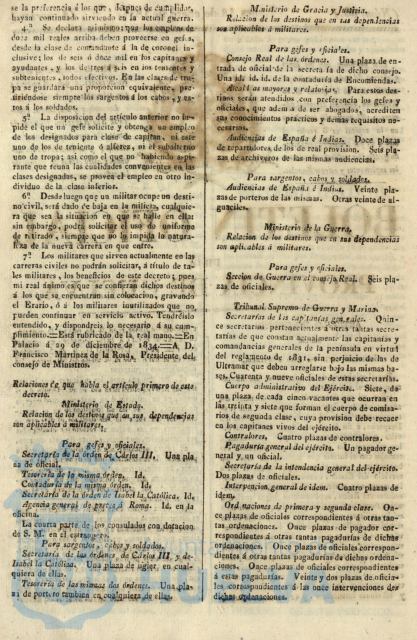 se la preferencia á los que, despues de cumplidas,
hayan continuado sirviendo en la actual guerra.
4.º Se declara asimismo: que los empleos de
doce mil reales arriba deben proveerse en gefes,
desde la clase de comandante á la de coronel in-
clusive; los de seis á doce mil en los capitanes y
ayudantes, y los de tres á seis en los tenientes y
subtenientes, todos efectivos. En las clases de tro-
pa se guardará una proporcion equivalente, pre-
firiéndose siempre los sargentos á los cabos, y es-
tos á los soldados.
5.º La disposicion del artículo anterior no im-
pide el que un gefe solicite y obtenga un empleo
de los designados para clase de capitan, ni este
uno de los de teniente ó alferez, ni el subalterno
uno de tropa; asi como el que no habiendo aspi-
rante que reuna las cualidades convenientes en las
clases designadas, se provea el empleo en otro in-
dividuo de la clase inferior.
6.º Desde luego que un militar ocupe un desti-
no civil, será dado de baja en la milicia, cualquie-
ra que sea la situacion en que se halle en ella;
sin embargo, podrá solicitar el uso de uniforme
de retirado, siempre que no lo impida la natura-
leza de la nueva carrera en que entre.
7.º Los militares que sirven actualmente en las
carreras civiles no podrán solicitar, á título de ta-
les militares, los beneficios de este decreto; pues
mi real ánimo es que se confieran dichos destinos
á los que se encuentran sin colocacion, gravando
el Erario, ó á los militares inutilizados que no
pueden continuar en servicio activo. Tendréislo
entendido, y dispondreis lo necesario á su cum-
plimiento.=Está rubricado de la real mano.=En
Palacio á 29 de diciembre de 1834.=A D.
Francisco Martinez de la Rosa, Presidente del
consejo de Ministros.
Relaciones de que habla el artículo primero de este
decreto.
Ministerio de Estado.
Relacion de los destinos que en sus dependencias
son aplicables á militares.
Para gefes y oficiales.
Secretaría de la órden de Cárlos III. Una pla-
za de oficial.
Tesorería de la misma órden. Id.
Contaduría de la misma órden. Id.
Secretaría de la órden de Isabel la Católica. Id.
Agencia general de preces á Roma. Id. en la
oficina.
La cuarta parte de los consulados con dotacion
de S. M. en el estrangero.
Para sargentos, cabos y soldados.
Secretaría de las órdenes de Cárlos III, y de
Isabel la Católica. Una plaza de ugier, en cual-
quiera de ellas.
Tesorería de las mismas dos órdenes. Una pla-
za de portero tambien en cualquiera de ellas.
Ministerio de Gracia y Justicia.
Relacion de los destinos que en sus dependencias
son aplicables á militares.
Para gefes y oficiales.
Consejo Real de las órdenes. Una plaza de en-
trada de oficial de la secretaría de dicho consejo.
Una id. id. de la contaduría de Encomiendas.
Alcaldías mayores y relatorías. Para estos des-
tinos serán atendidos con preferencia los gefes y
oficiales, que ademas de ser abogados, acrediten
sus conocimientos prácticos y demas requisitos ne-
cesarios.
Audiencias de España é Indias. Doce plazas
de repartidores de los de real provision. Seis pla-
zas de archiveros de las mismas audiencias.
Para sargentos, cabos y soldados.
Audiencias de España é Indias. Veinte pla-
zas de porteros de las mismas. Otras veinte de al-
guaciles.
Ministerio de la Guerra.
Relacion de los destinos que en sus dependencias
son aplicables á militares.
Para gefes y oficiales.
Seccion de Guerra en el consejo Real. Seis pla-
zas de oficiales.
Tribunal Supremo de Guerra y Marina.
Secretarías de las capitanías generales. Quin-
ce secretarías pertenecientes á otras tantas secre-
tarías de que constan actualmente las capitanías y
comandancias generales de la península en virtud
del reglamento de 1831, sin perjuicio de las de
Ultramar que deben arreglarse bajo las mismas ba-
ses. Cuarenta y nueve oficiales de estas secretarías.
Cuerpo administrativo del Ejército. Siete, de
una plaza de cada cinco vacantes que ocurran en
las treinta y siete que forman el cuerpo de comisa-
rios de segunda clase, cuya provision debe recaer
en los capitanes vivos del ejército.
Contralores. Cuatro plazas de contralores.
Pagaduría general del ejército. Un pagador ge-
neral y un oficial.
Secretaría de la intendencia general del ejército.
Dos plazas de oficiales.
Intervencion general de idem. Cuatro plazas de
idem.
Ordenaciones de primera y segunda clase. On-
ce plazas de oficiales correspondientes á otras tan-
tas ordenaciones. Once plazas de pagador cor-
respondientes á otras tantas pagadurías de dichas
ordenaciones. Once plazas de oficiales correspon-
dientes á otras tantas pagadurías de dichas ordena-
ciones. Once plazas de oficiales correspondientes
á estas pagadurías. Veinte y dos plazas de oficia-
les correspondientes á las once intervenciones de
dichas ordenaciones.